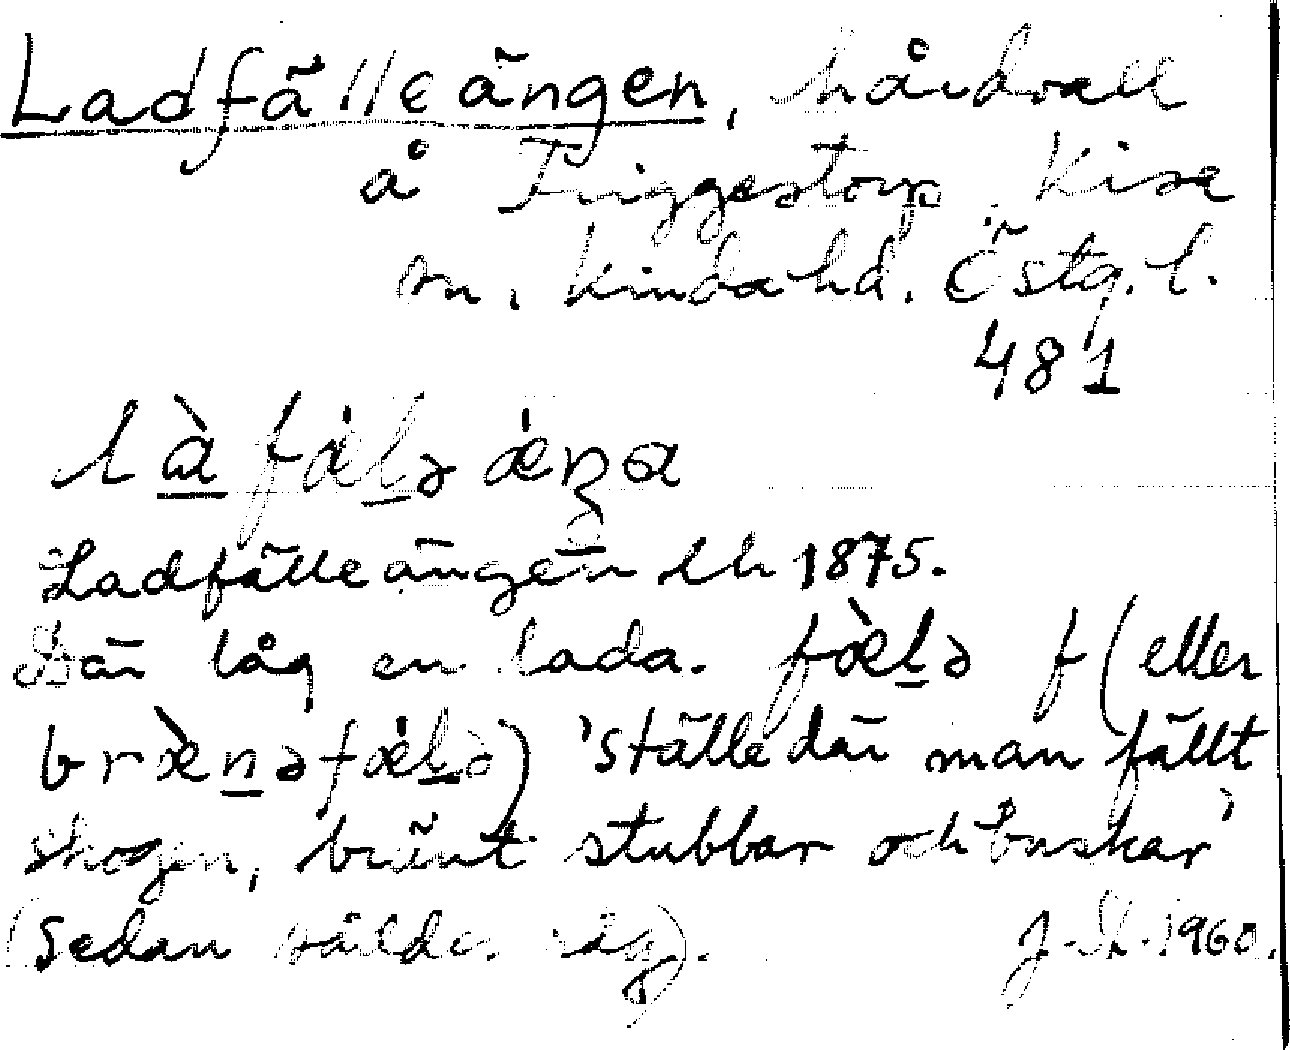 Ladfälleängen, hårdvall
å Friggestorp Kisa
sn, Kinda hd. Östg. l.
481
là fæ̀lə ǽŋa
Ladfälleängen lh 1875.
Där låg en lada. fæ̀lə f (eller
bræ̀nəfǽlə) 'ställe där man fällt
skogen, bränt stubbar och buskar'
(sedan sådde råg). J.Sk. 1960.